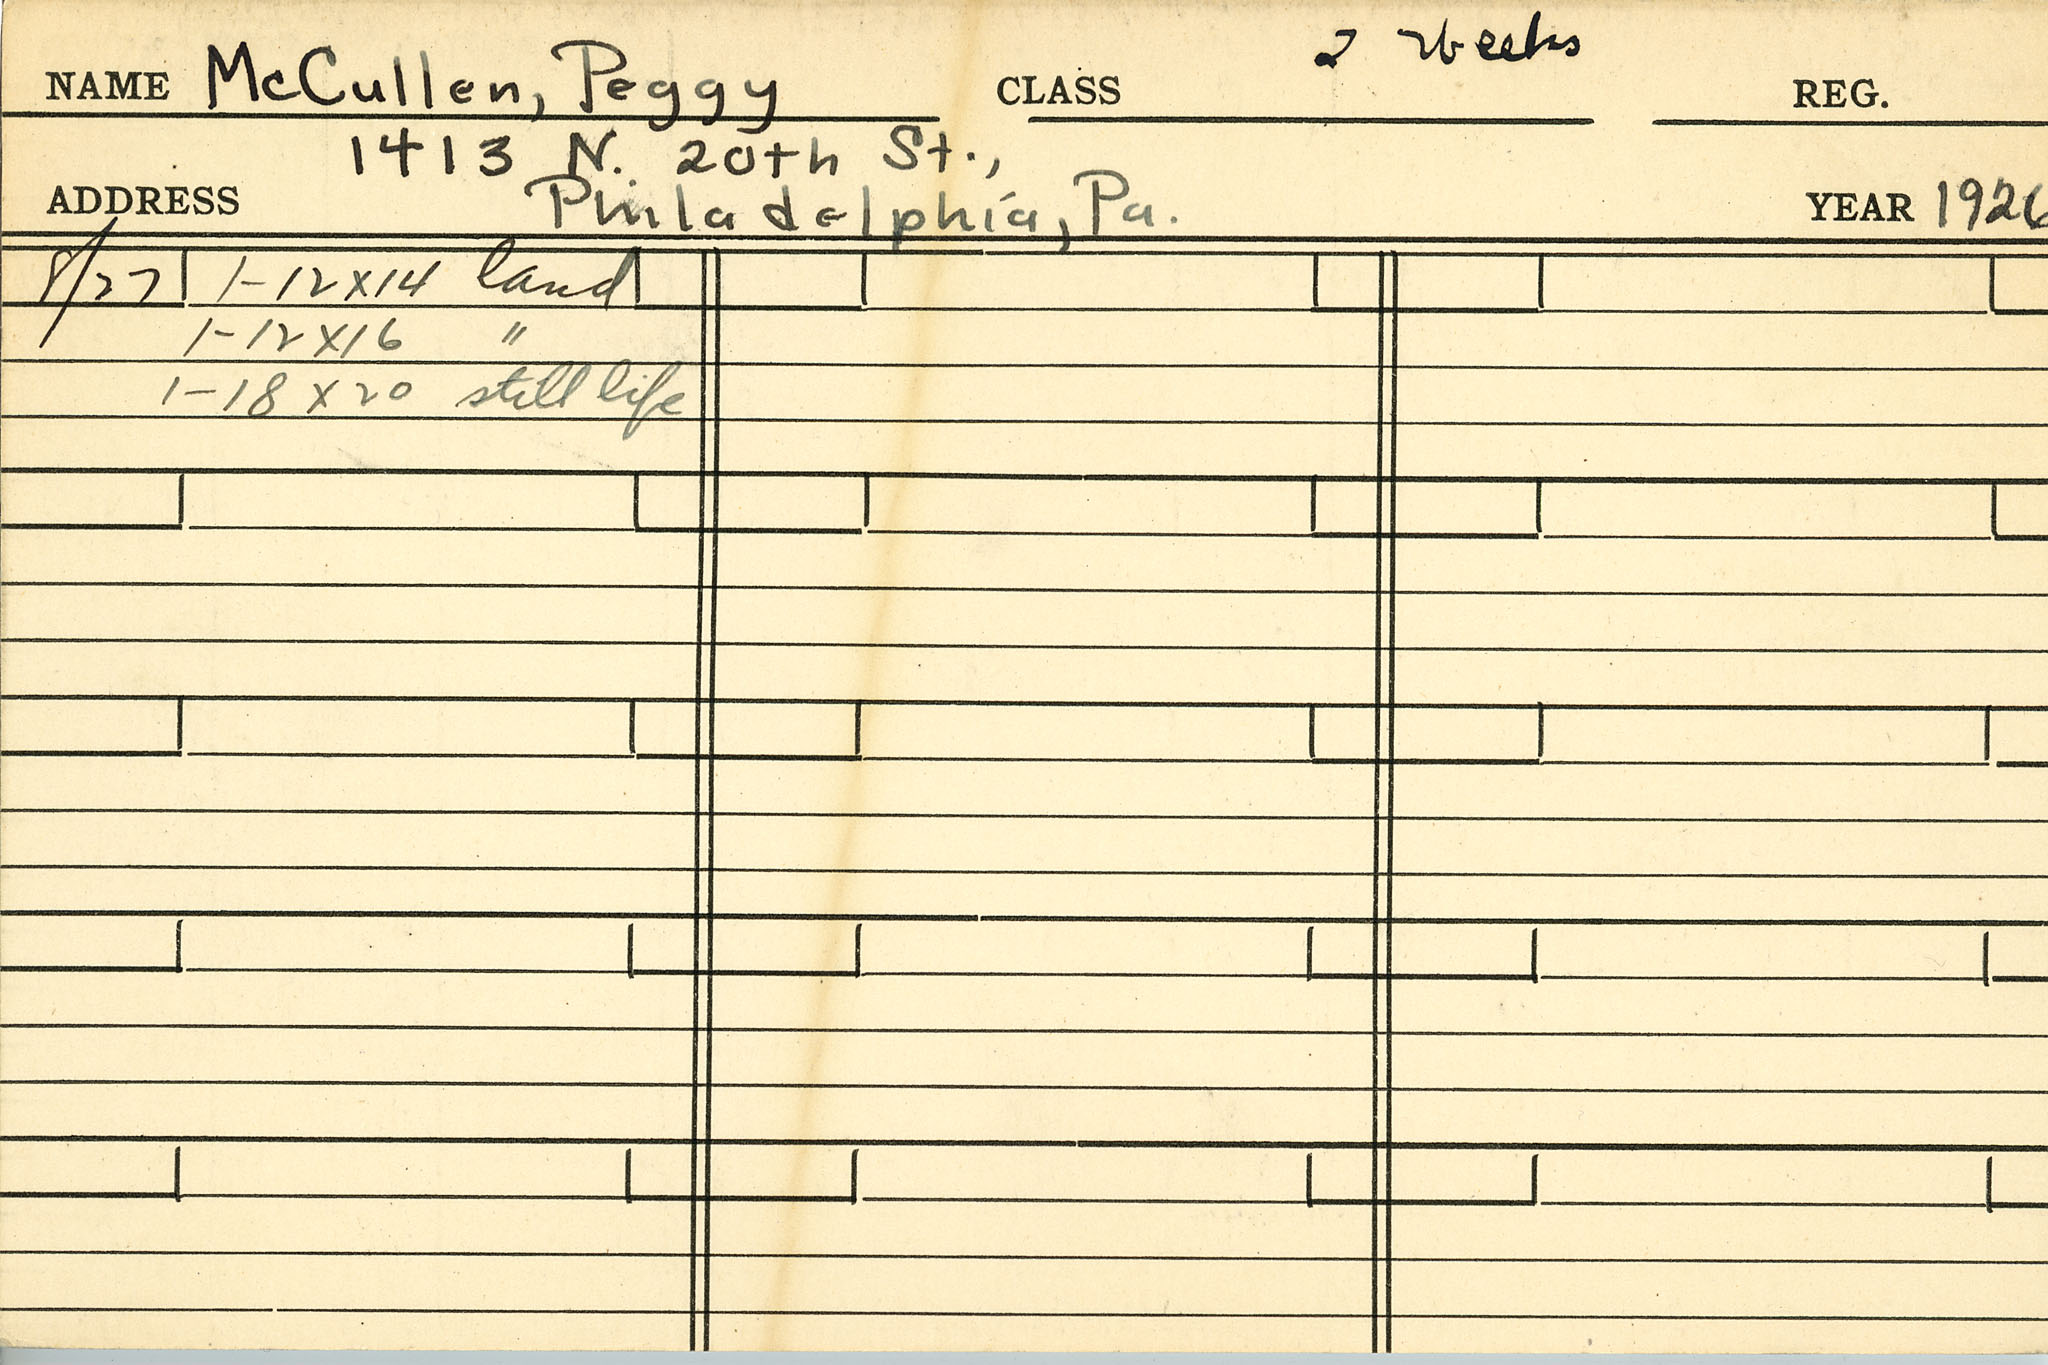 2 Weeks
NAME McCullen, Peggy CLASS REG.
1413 N. 20th St.,
ADDRESS Philadelphia, Pa. YEAR 1926
8/27 1-12x14 land
1-12x16 "
1-18x20 still life